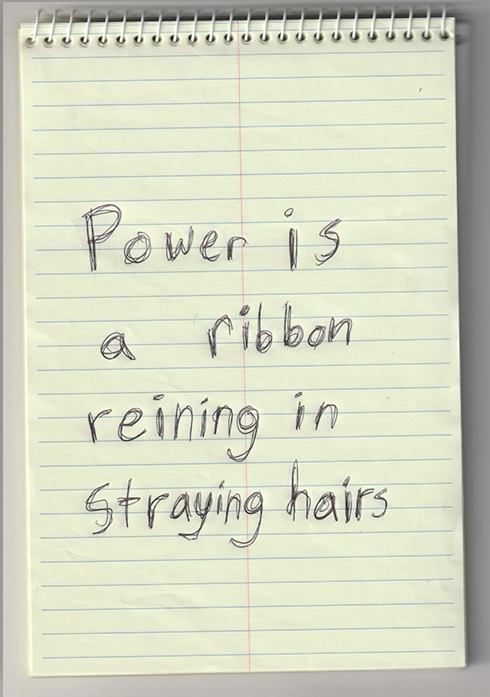 Power is
a ribbon
reining in
straying hairs